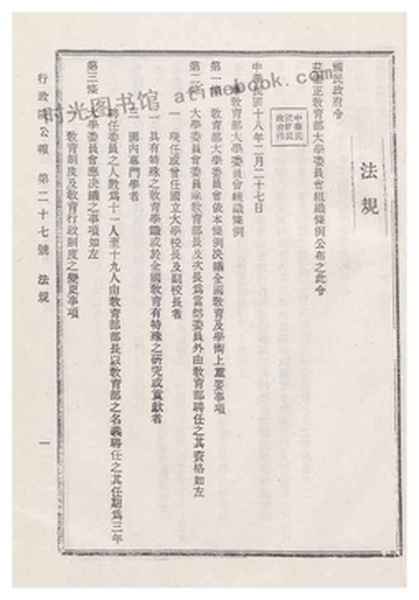 法規
國民政府令
茲修正教育部大學委員會組織條例公布之此令
中華民國十八年二月二十七日
教育部大學委員會組織條例
第一條 教育部大學委員會依本條例決議全國教育及學術上重要事項
第二條 大學委員會除教育部長及次長為當然委員外由教育部聘任之其資格如左
一 現任或曾任國立大學校長及副校長者
二 具有特殊之教育學識或於全國教育有特殊之研究或貢獻者
三 國內專門學者
聘任委員之人數為十一人至十九人由教育部部長以教育部之名義聘任之其任期為三年
第三條 大學委員會應決議之事項如左
一 教育制度及教育行政制度之變更事項
行政院公報 第二十七號 法規
一
时光图书馆 atimebook.com